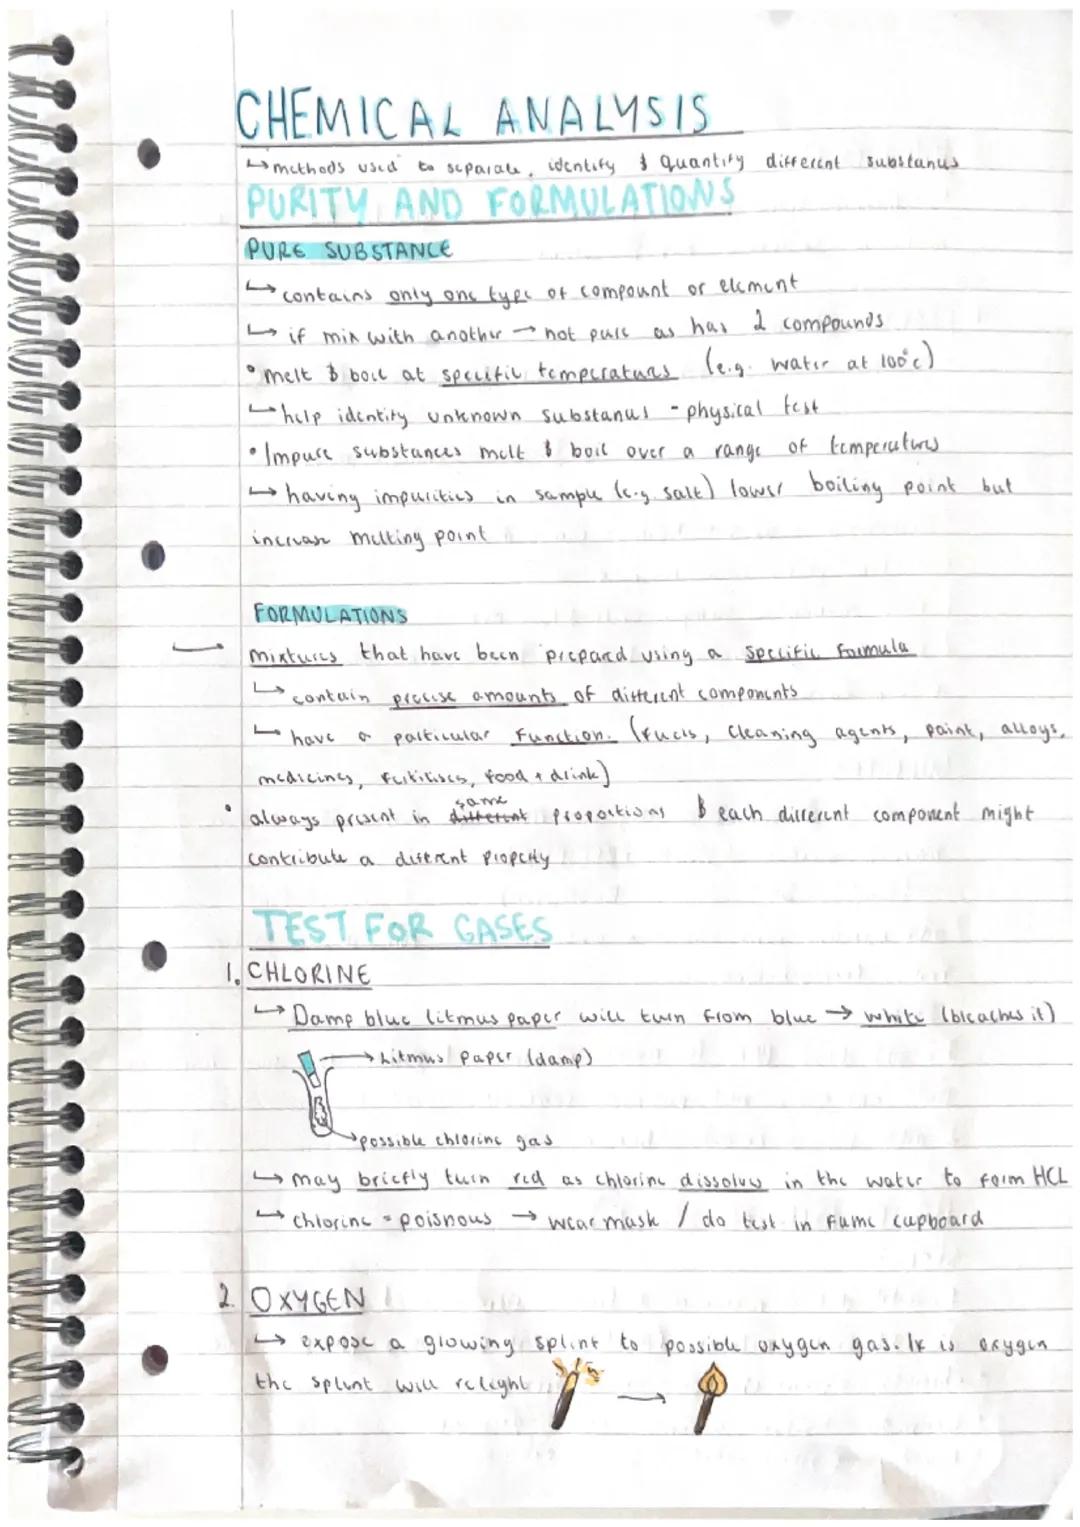 CHEMICAL ANALYSIS
↳ methods used to separate, identify & quantify different substances
PURITY AND FORMULATIONS
PURE SUBSTANCE
↳ contains only one type of compount or element
↳ if mix with another → not pure as has 2 compounds
• melt & boil at specific temperatures (e.g. water at 100°c)
↳ help identify unknown substances - physical test
• Impure substances melt & boil over a range of temperatures
↳ having impurities in sample (e.g. salt) lower boiling point but
increase melting point
FORMULATIONS
mixtures that have been prepared using a specific formula
↳ contain precise amounts of different components
↳ have a particular function. (fuels, cleaning agents, paint, alloys,
medicines, fertilisers, food + drink)
same
• always present in different proportions & each different component might
contribute a different property
TEST FOR GASES
1. CHLORINE
↳ Damp blue litmus paper will turn from blue → white (bleaches it)
→ Litmus paper (damp)
→ possible chlorine gas
↳ may briefly turn red as chlorine dissolves in the water to form HCL
↳ chlorine = poisnous → wear mask / do test in fume cupboard
2. OXYGEN
↳ expose a glowing splint to possible oxygen gas. If is oxygen
the splint will relight